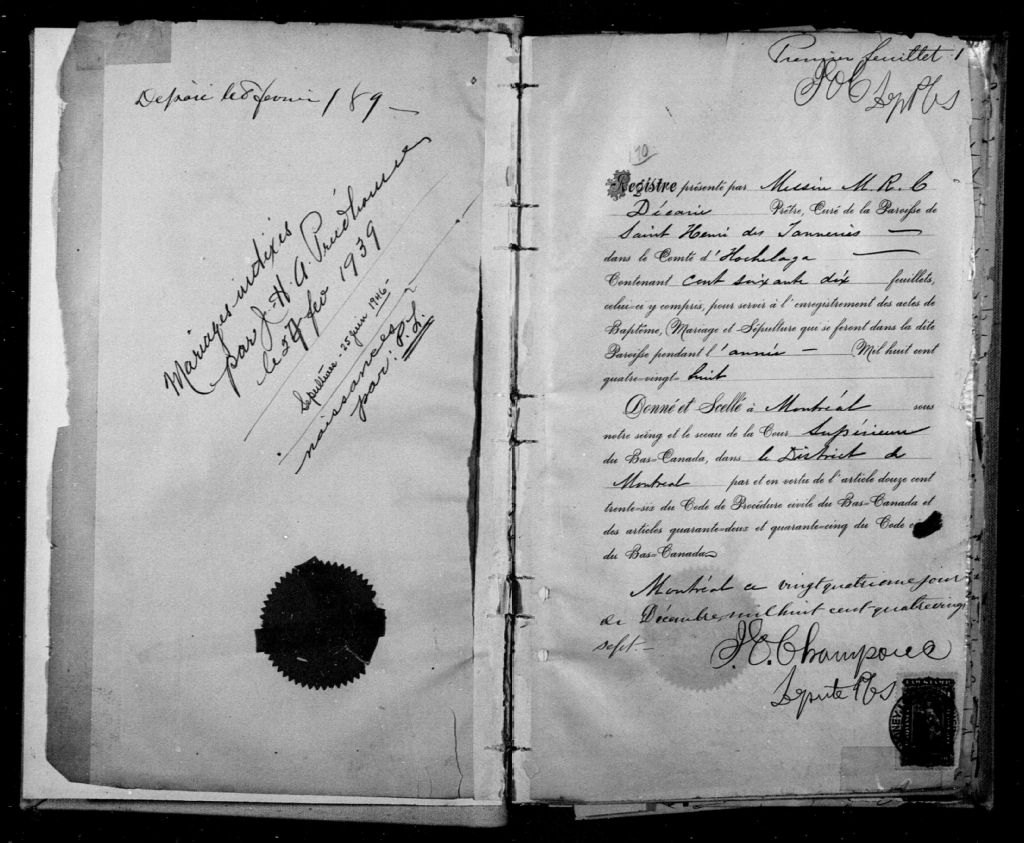 Déposé le 8 février 189
Mariages indixés
par J. H. A. Prud'homme
le 27 fev 1939
Sépultures - 25 juin 1946 -
naissances
par: P. L.
Premier feuillet 1
170
Registre présenté par Messire M. R. C
Décarie Prêtre, Curé de la Paroisse de
Saint Henri des Tanneries
dans le Comté d'Hochelaga
Contenant cent soixante dix feuillets,
celui-ci y compris, pour servir à l'enregistrement des actes de
Baptême, Mariage et Sépulture qui se feront dans la dite
Paroisse pendant l'année — Mil huit cent
quatre-vingt huit
Donné et Scellé à Montréal sous
notre seing et le sceau de la Cour Supérieure
du Bas-Canada, dans le District de
Montréal par et en vertu de l'article douze cent
trente-six du Code de Procédure civile du Bas-Canada et
des articles quarante-deux et quarante-cinq du Code
du Bas-Canada.
Montréal ce vingt quatrieme jour
de Décembre mil huit cent quatre vingt
sept.—
J. E. Champoux
Députe P C S
LAW STAMP